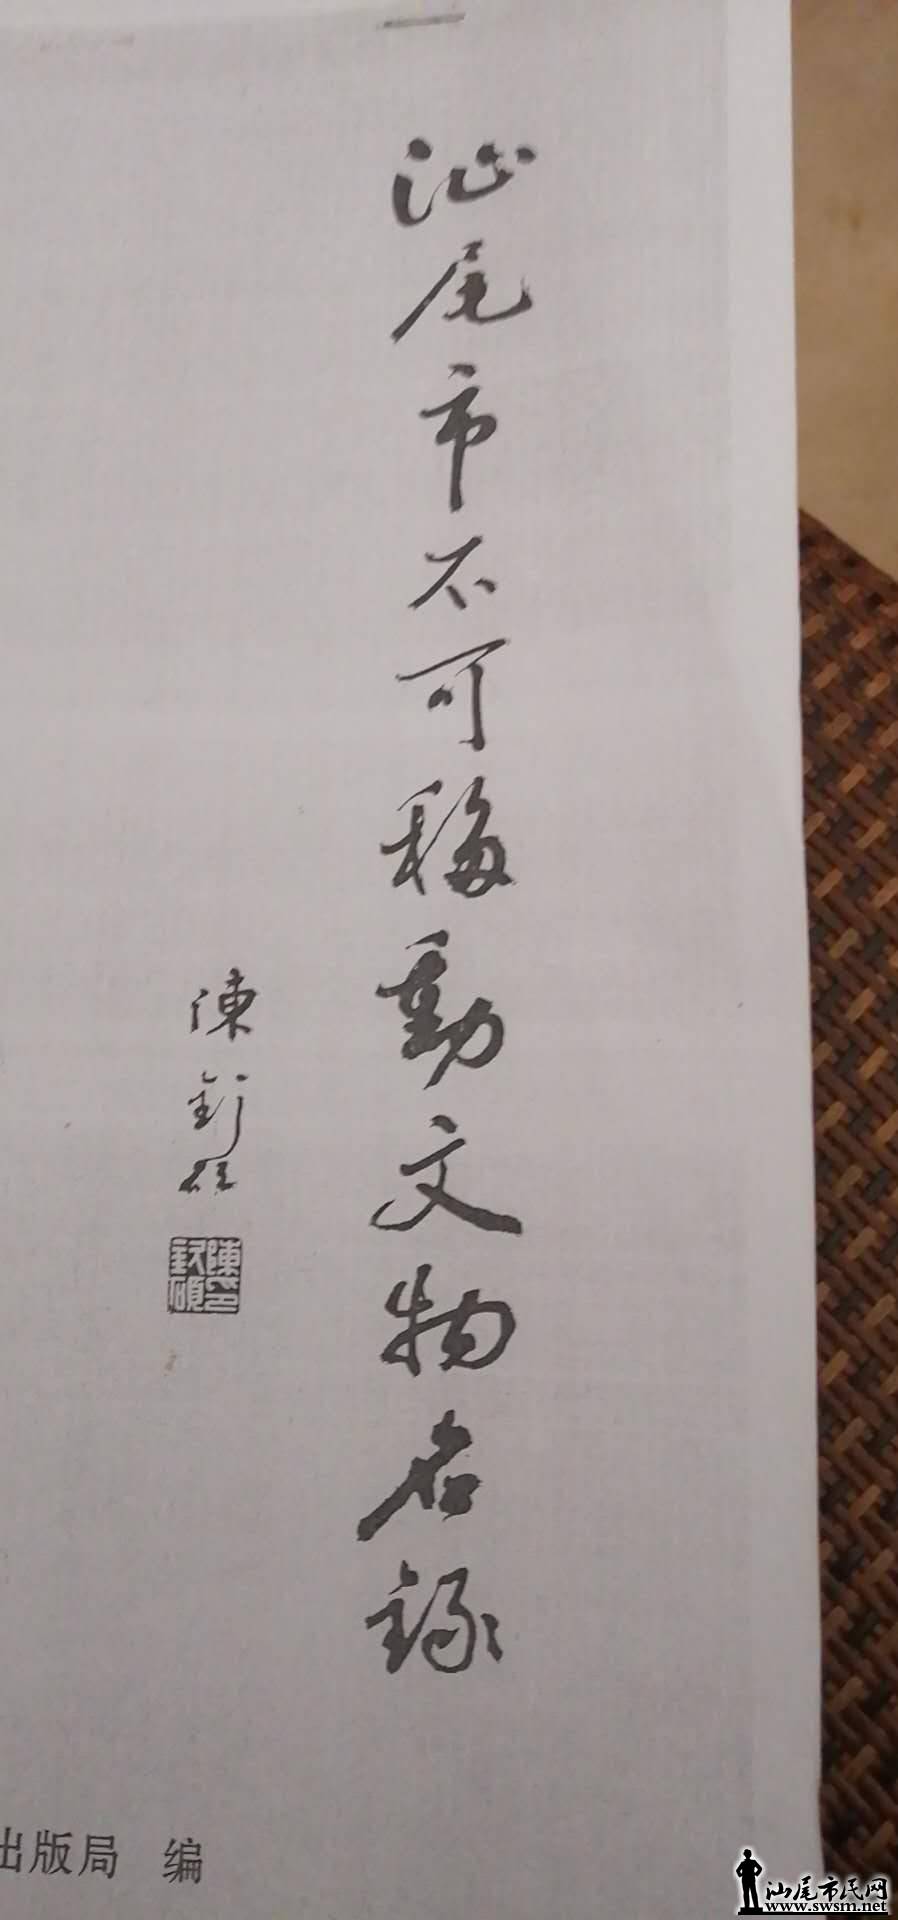 汕尾市不可移動文物名錄
陳釗硕
陳印釗碩
出版局 编
汕尾市民网
www.swsm.net